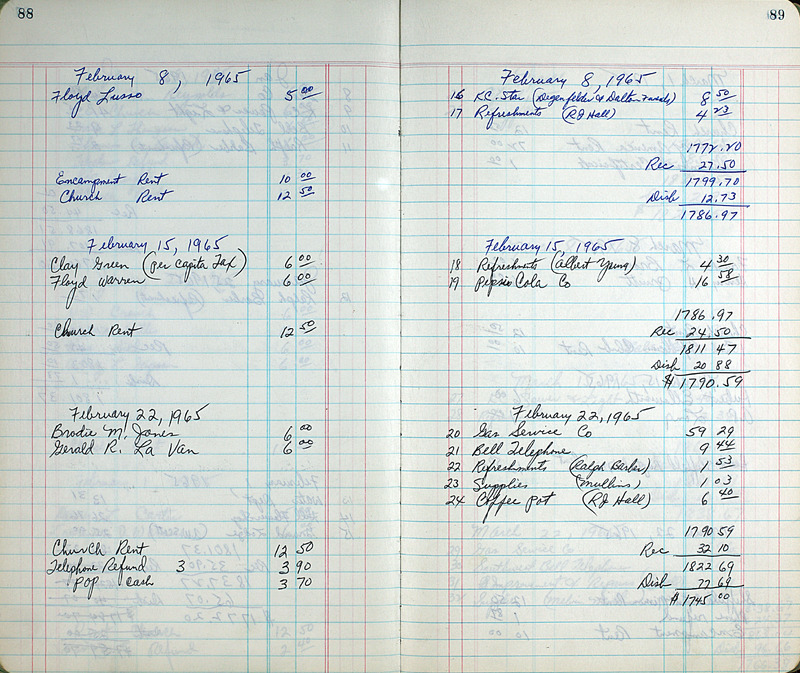 88
February 8, 1965
Floyd Lusso 5 00
Encampment Rent 10 00
Church Rent 12 50
February 15, 1965
Clay Green (per capita Tax) 6 00
Floyd Warren 6 00
Church Rent 12 50
February 22, 1965
Brodie M. Jones 6 00
Gerald R. La Van 6 00
Church Rent 12 50
Telephone Refund 3 3 90
POP Cash 3 70
89
February 8, 1965
16 K.C. Star (Degenfelder & Dalton 8 50
17 Refreshments (RJ Hall) 4 23
1772.20
Rec 27.50
1799.70
Disb 12.73
1786.97
February 15, 1965
18 Refreshments (Albert Young) 4 30
19 Pepsio Cola Co 16 58
1786.97
Rec 24.50
1811 47
Disb 20 88
$ 1790.59
February 22, 1965
20 Gas Service Co 59 29
21 Bell Telephone 9 44
22 Refreshments (Ralph Barker) 1 53
23 Supplies (Mullins) 1 03
24 Coffee Pot (RJ Hall) 6 40
1790 59
Rec 32 10
1822 69
Disb 77 69
$ 1745 00